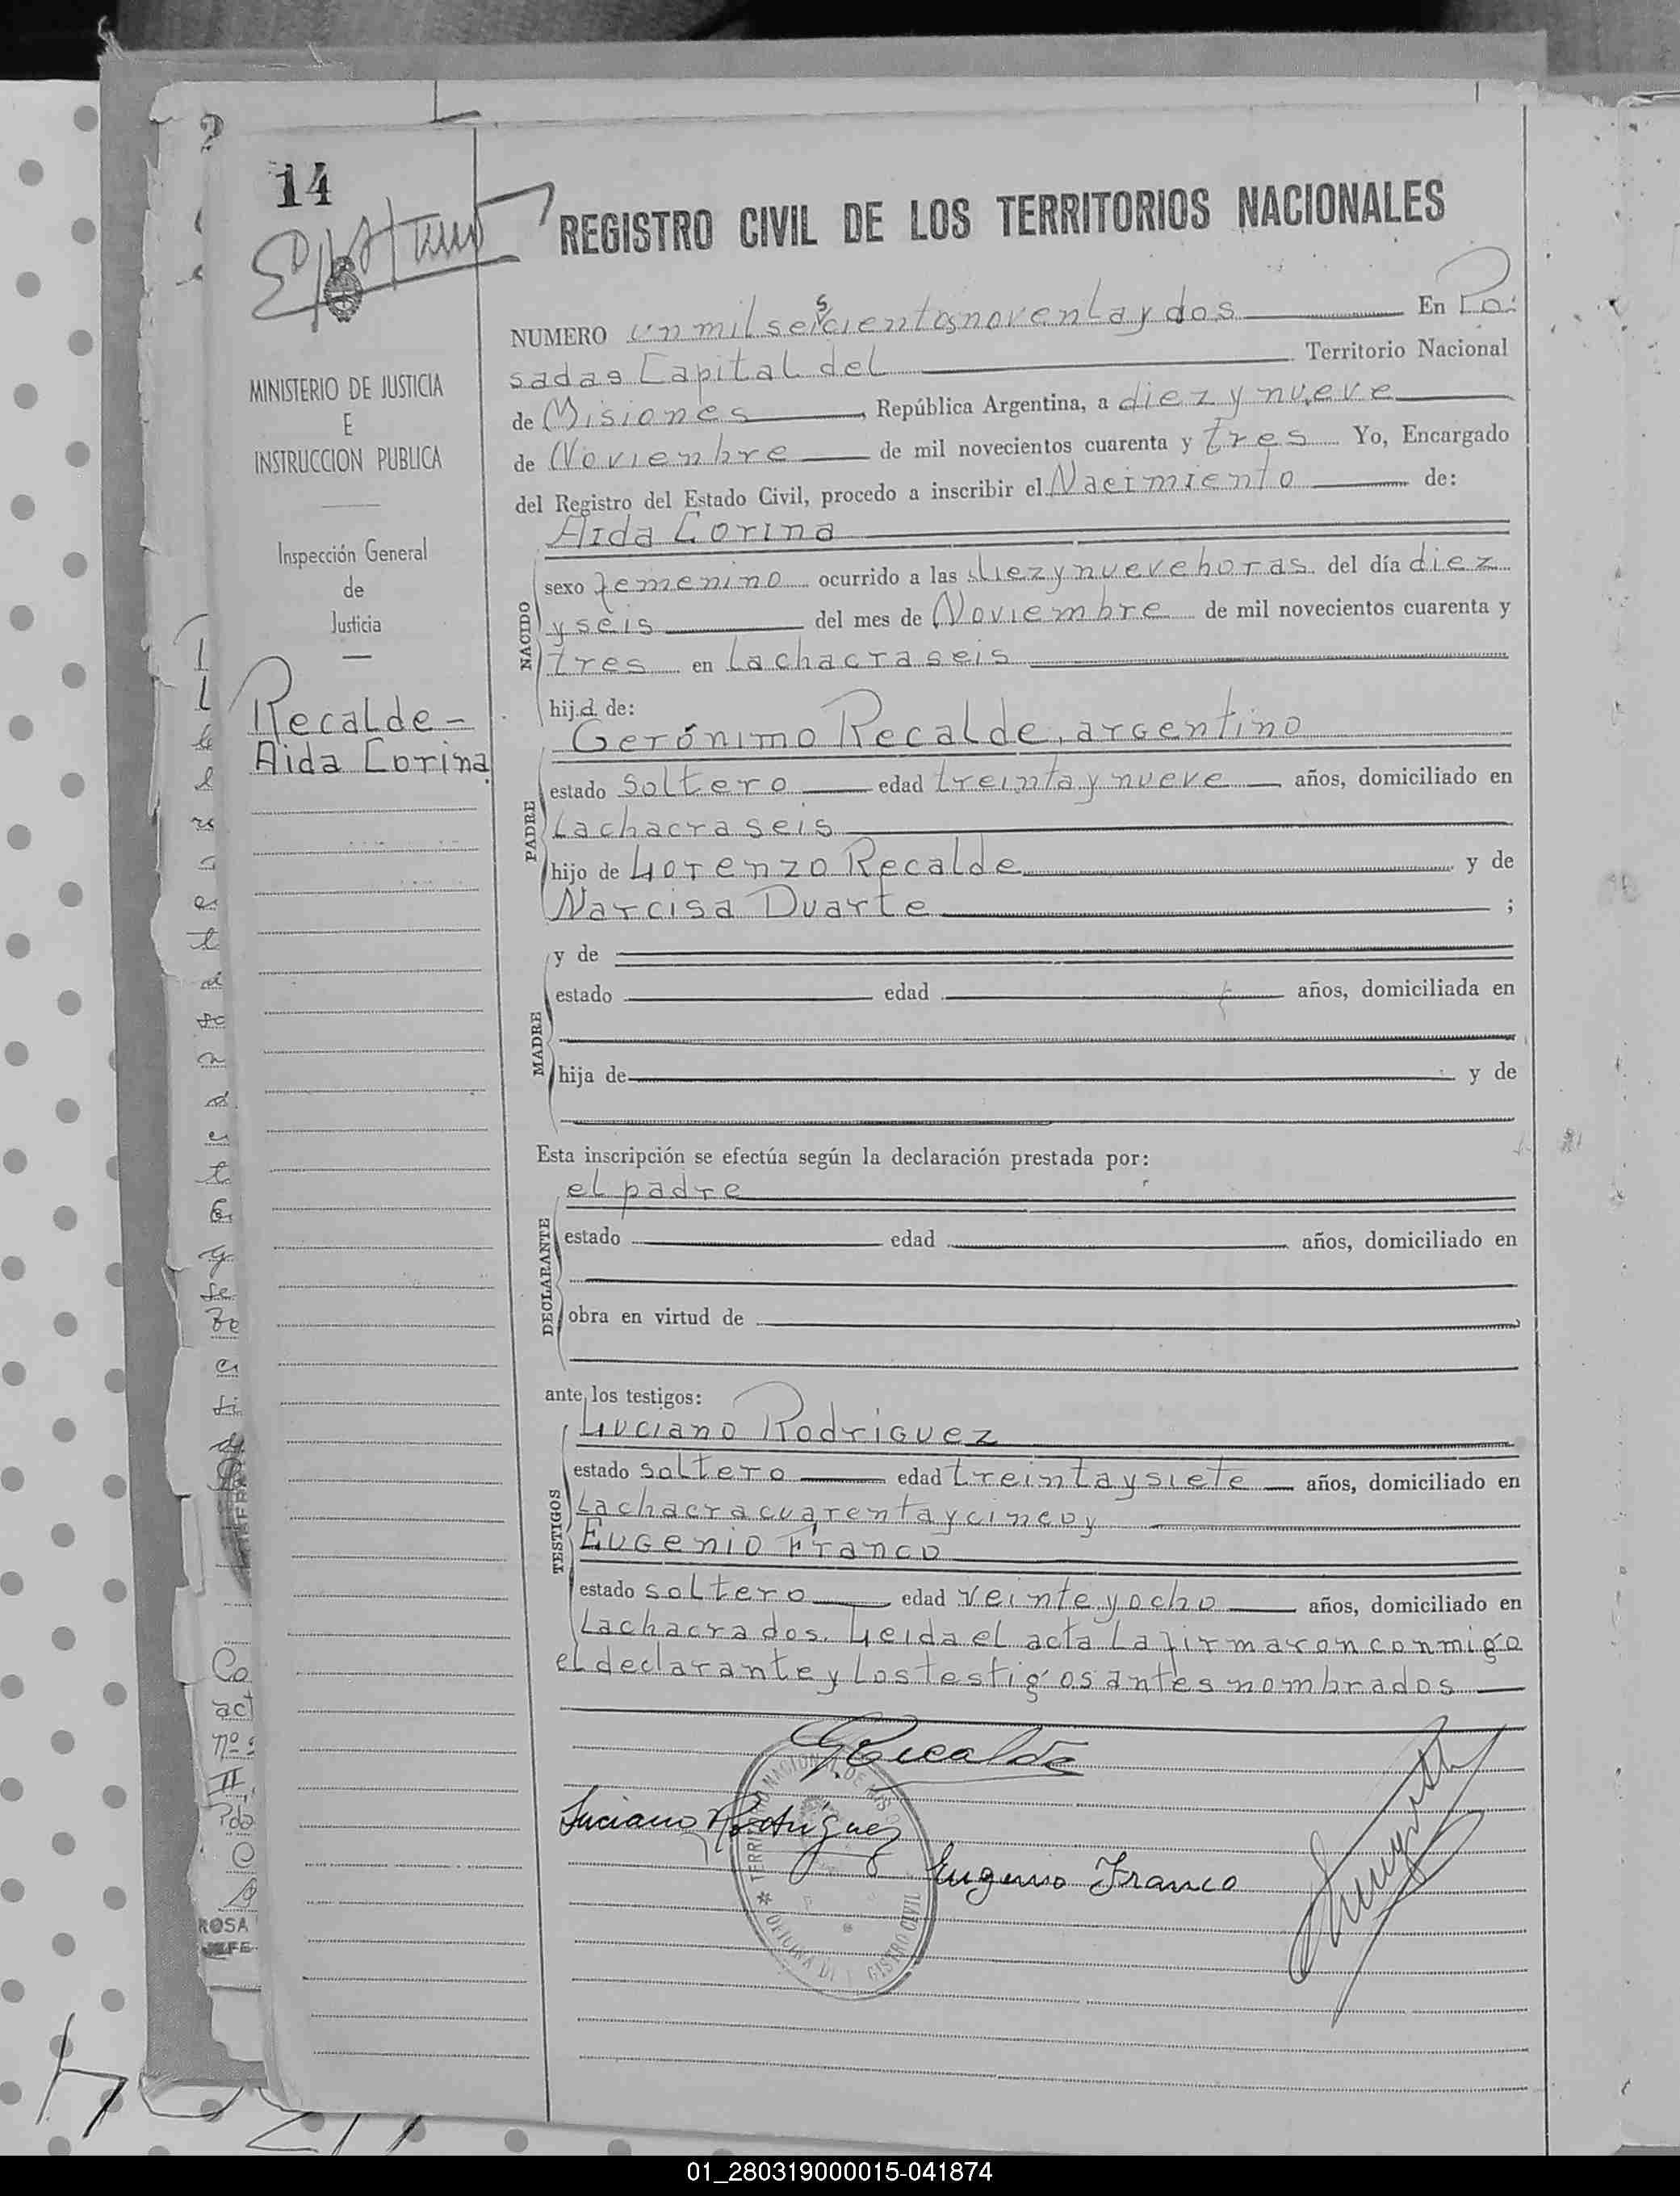 14
REGISTRO CIVIL DE LOS TERRITORIOS NACIONALES
NUMERO un mil seiscientos noventa y dos En Po:
sadas Capital del Territorio Nacional
de Misiones, República Argentina, a diez y nueve
de Noviembre de mil novecientos cuarenta y tres Yo, Encargado
del Registro del Estado Civil, procedo a inscribir el Nacimiento de:
Aida Corina
NACIDO
sexo femenino ocurrido a las diez y nueve horas del día diez
y seis del mes de Noviembre de mil novecientos cuarenta y
tres en la chacra seis
hij.a de:
PADRE
Gerónimo Recalde, argentino
estado soltero edad treinta y nueve años, domiciliado en
la chacra seis
hijo de Lorenzo Recalde y de
Narcisa Duarte ;
MADRE
y de
estado edad años, domiciliada en
hija de y de
Esta inscripción se efectúa según la declaración prestada por:
DECLARANTE
el padre
estado edad años, domiciliado en
obra en virtud de
ante los testigos:
TESTIGOS
Luciano Rodriguez
estado soltero edad treinta y siete años, domiciliado en
la chacra cuarenta y cinco y
Eugenio Franco
estado soltero edad veinte y ocho años, domiciliado en
la chacra dos. Leida el acta la firmaron conmigo
el declarante y los testigos antes nombrados
GRecalde
Luciano Rodriguez
Eugenio Franco
TERRITORIO NACIONAL DE MIS
OFICINA DE GISTRO CIVIL
MINISTERIO DE JUSTICIA
E
INSTRUCCION PUBLICA
Inspección General
de
Justicia
Recalde-
Aida Corina.
Co
act
nº
II
Pdo
ROSA
JEFE
01_280319000015-041874